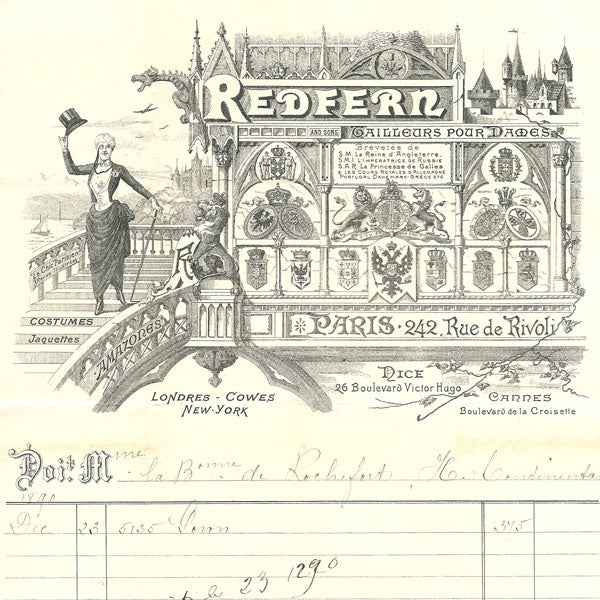 REDFERN
AND SONS TAILLEURS POUR DAMES
Brevetés de
S.M. La Reine d'Angleterre.
S.M.I. L'IMPERATRICE DE RUSSIE
S.A.R. La Princesse de Galles
& LES COURS ROYALES D'ALLEMAGNE
PORTUGAL DANEMARK GRÈCE ETC
Le Chic Parisien
COSTUMES
Jaquettes
AMAZONES
PARIS · 242, Rue de Rivoli
LONDRES - COWES
NEW-YORK
NICE
26 Boulevard Victor Hugo
CANNES
Boulevard de la Croisette
Doit. M me la Bonne de Rochefort, H. Continental
1890
Dec 23 5135 Gown 575
le 23 1290